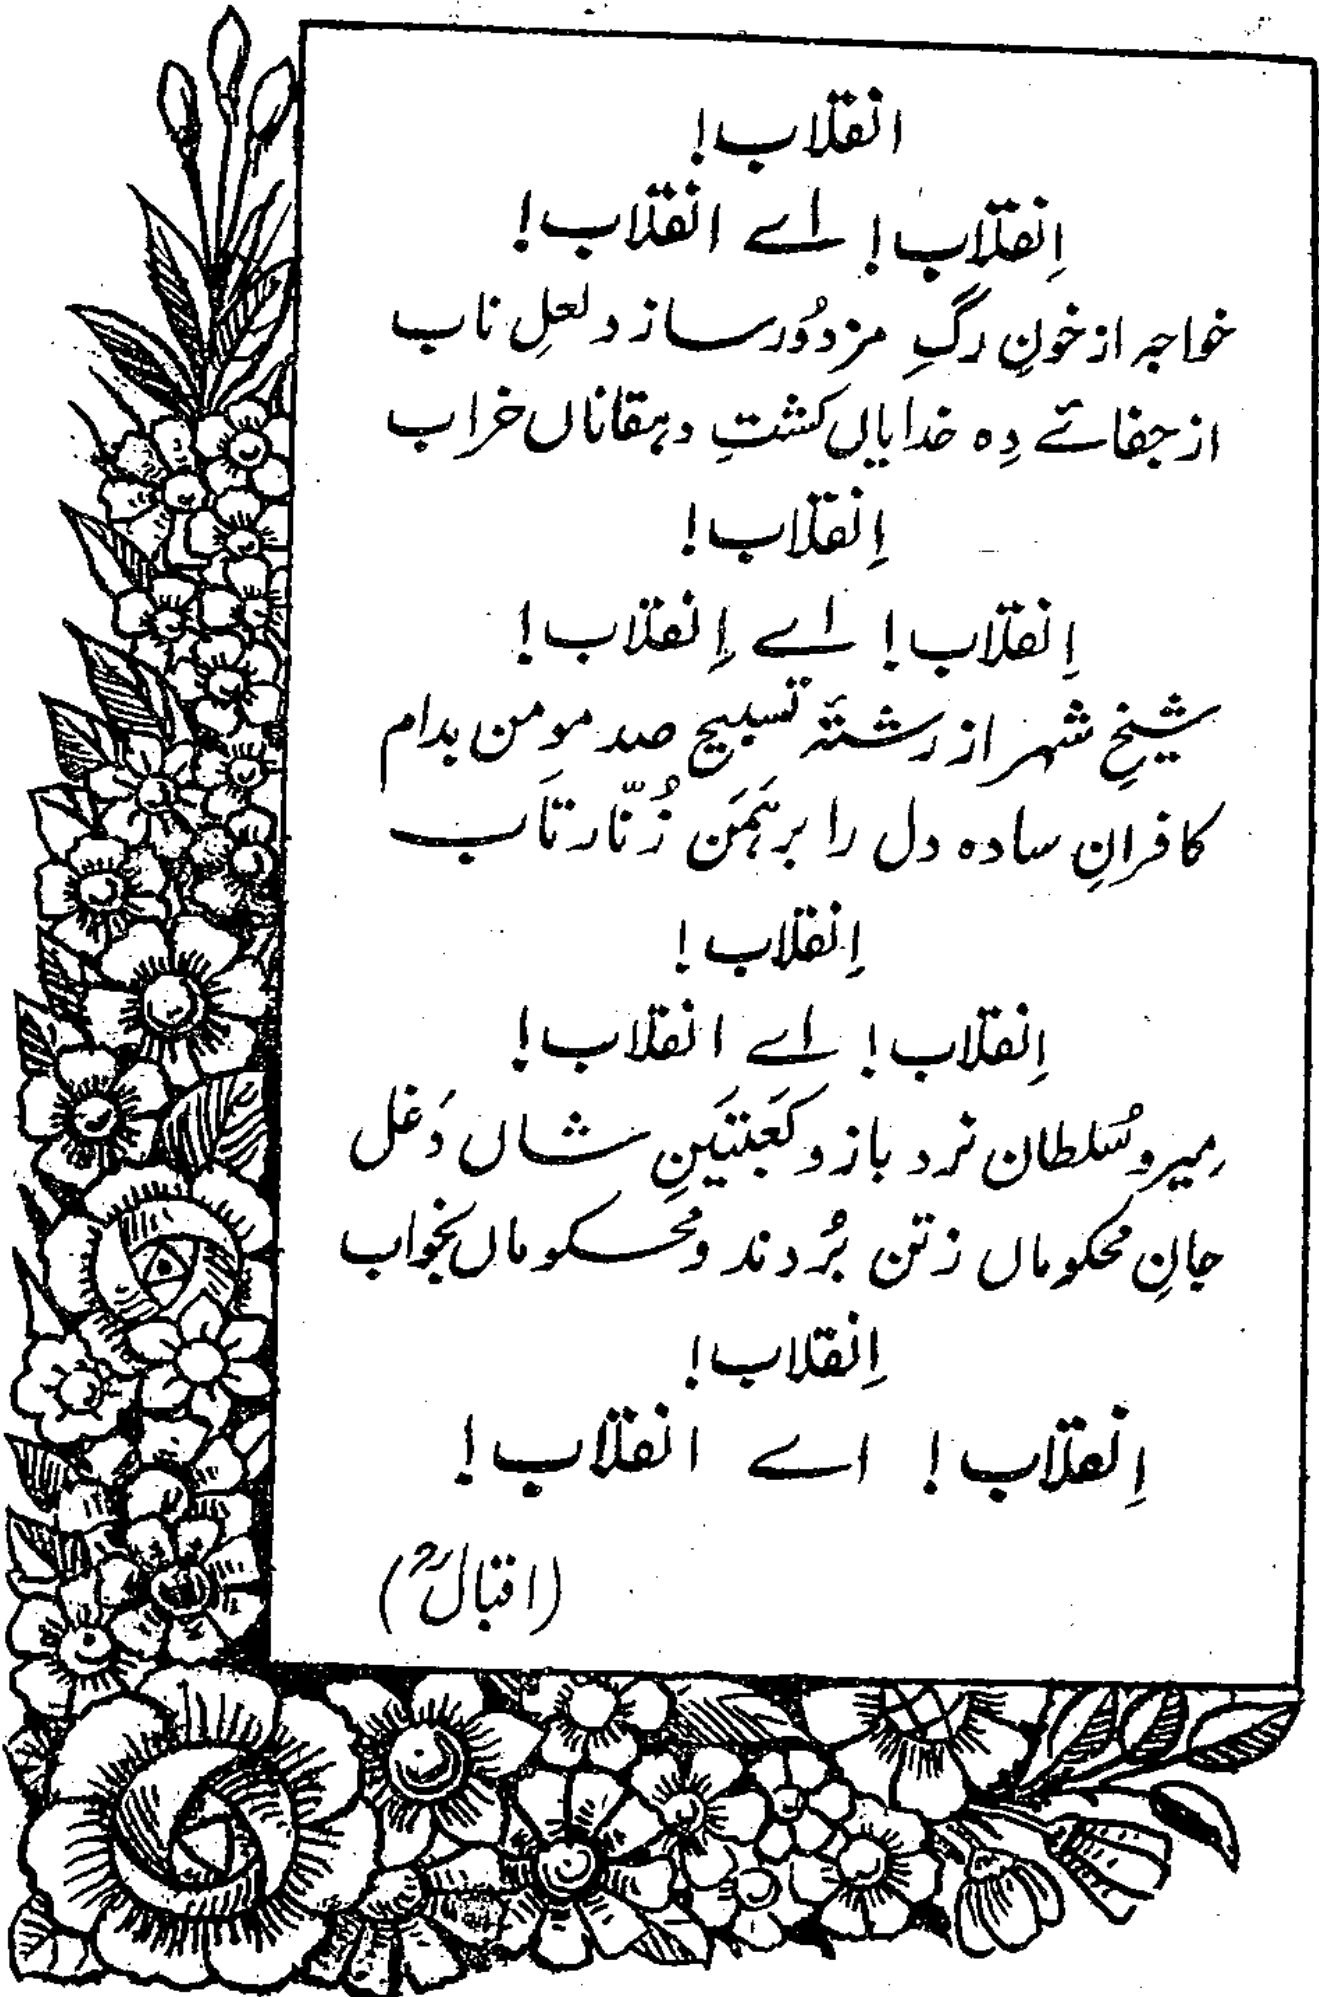 انقلاب!
اِنقلاب! اے انقلاب!
خواجہ از خونِ رگِ مزدُور سازد لعلِ ناب
از جفائے دِہ خدایاں کشتِ دہقاناں خراب
اِنقلاب!
اِنقلاب! اے اِنقلاب!
شیخِ شہر از رشتۂ تسبیح صد مومن بدام
کافرانِ سادہ دل را برہَمَن زُنّار تاب
اِنقلاب!
اِنقلاب! اے انقلاب!
میر و سُلطان نرد باز و کَعبتَینِ شاں دَغل
جانِ محکوماں زتن بُردند و محکوماں بخواب
اِنقلاب!
اِنقلاب! اے انقلاب!
(اقبالؒ)